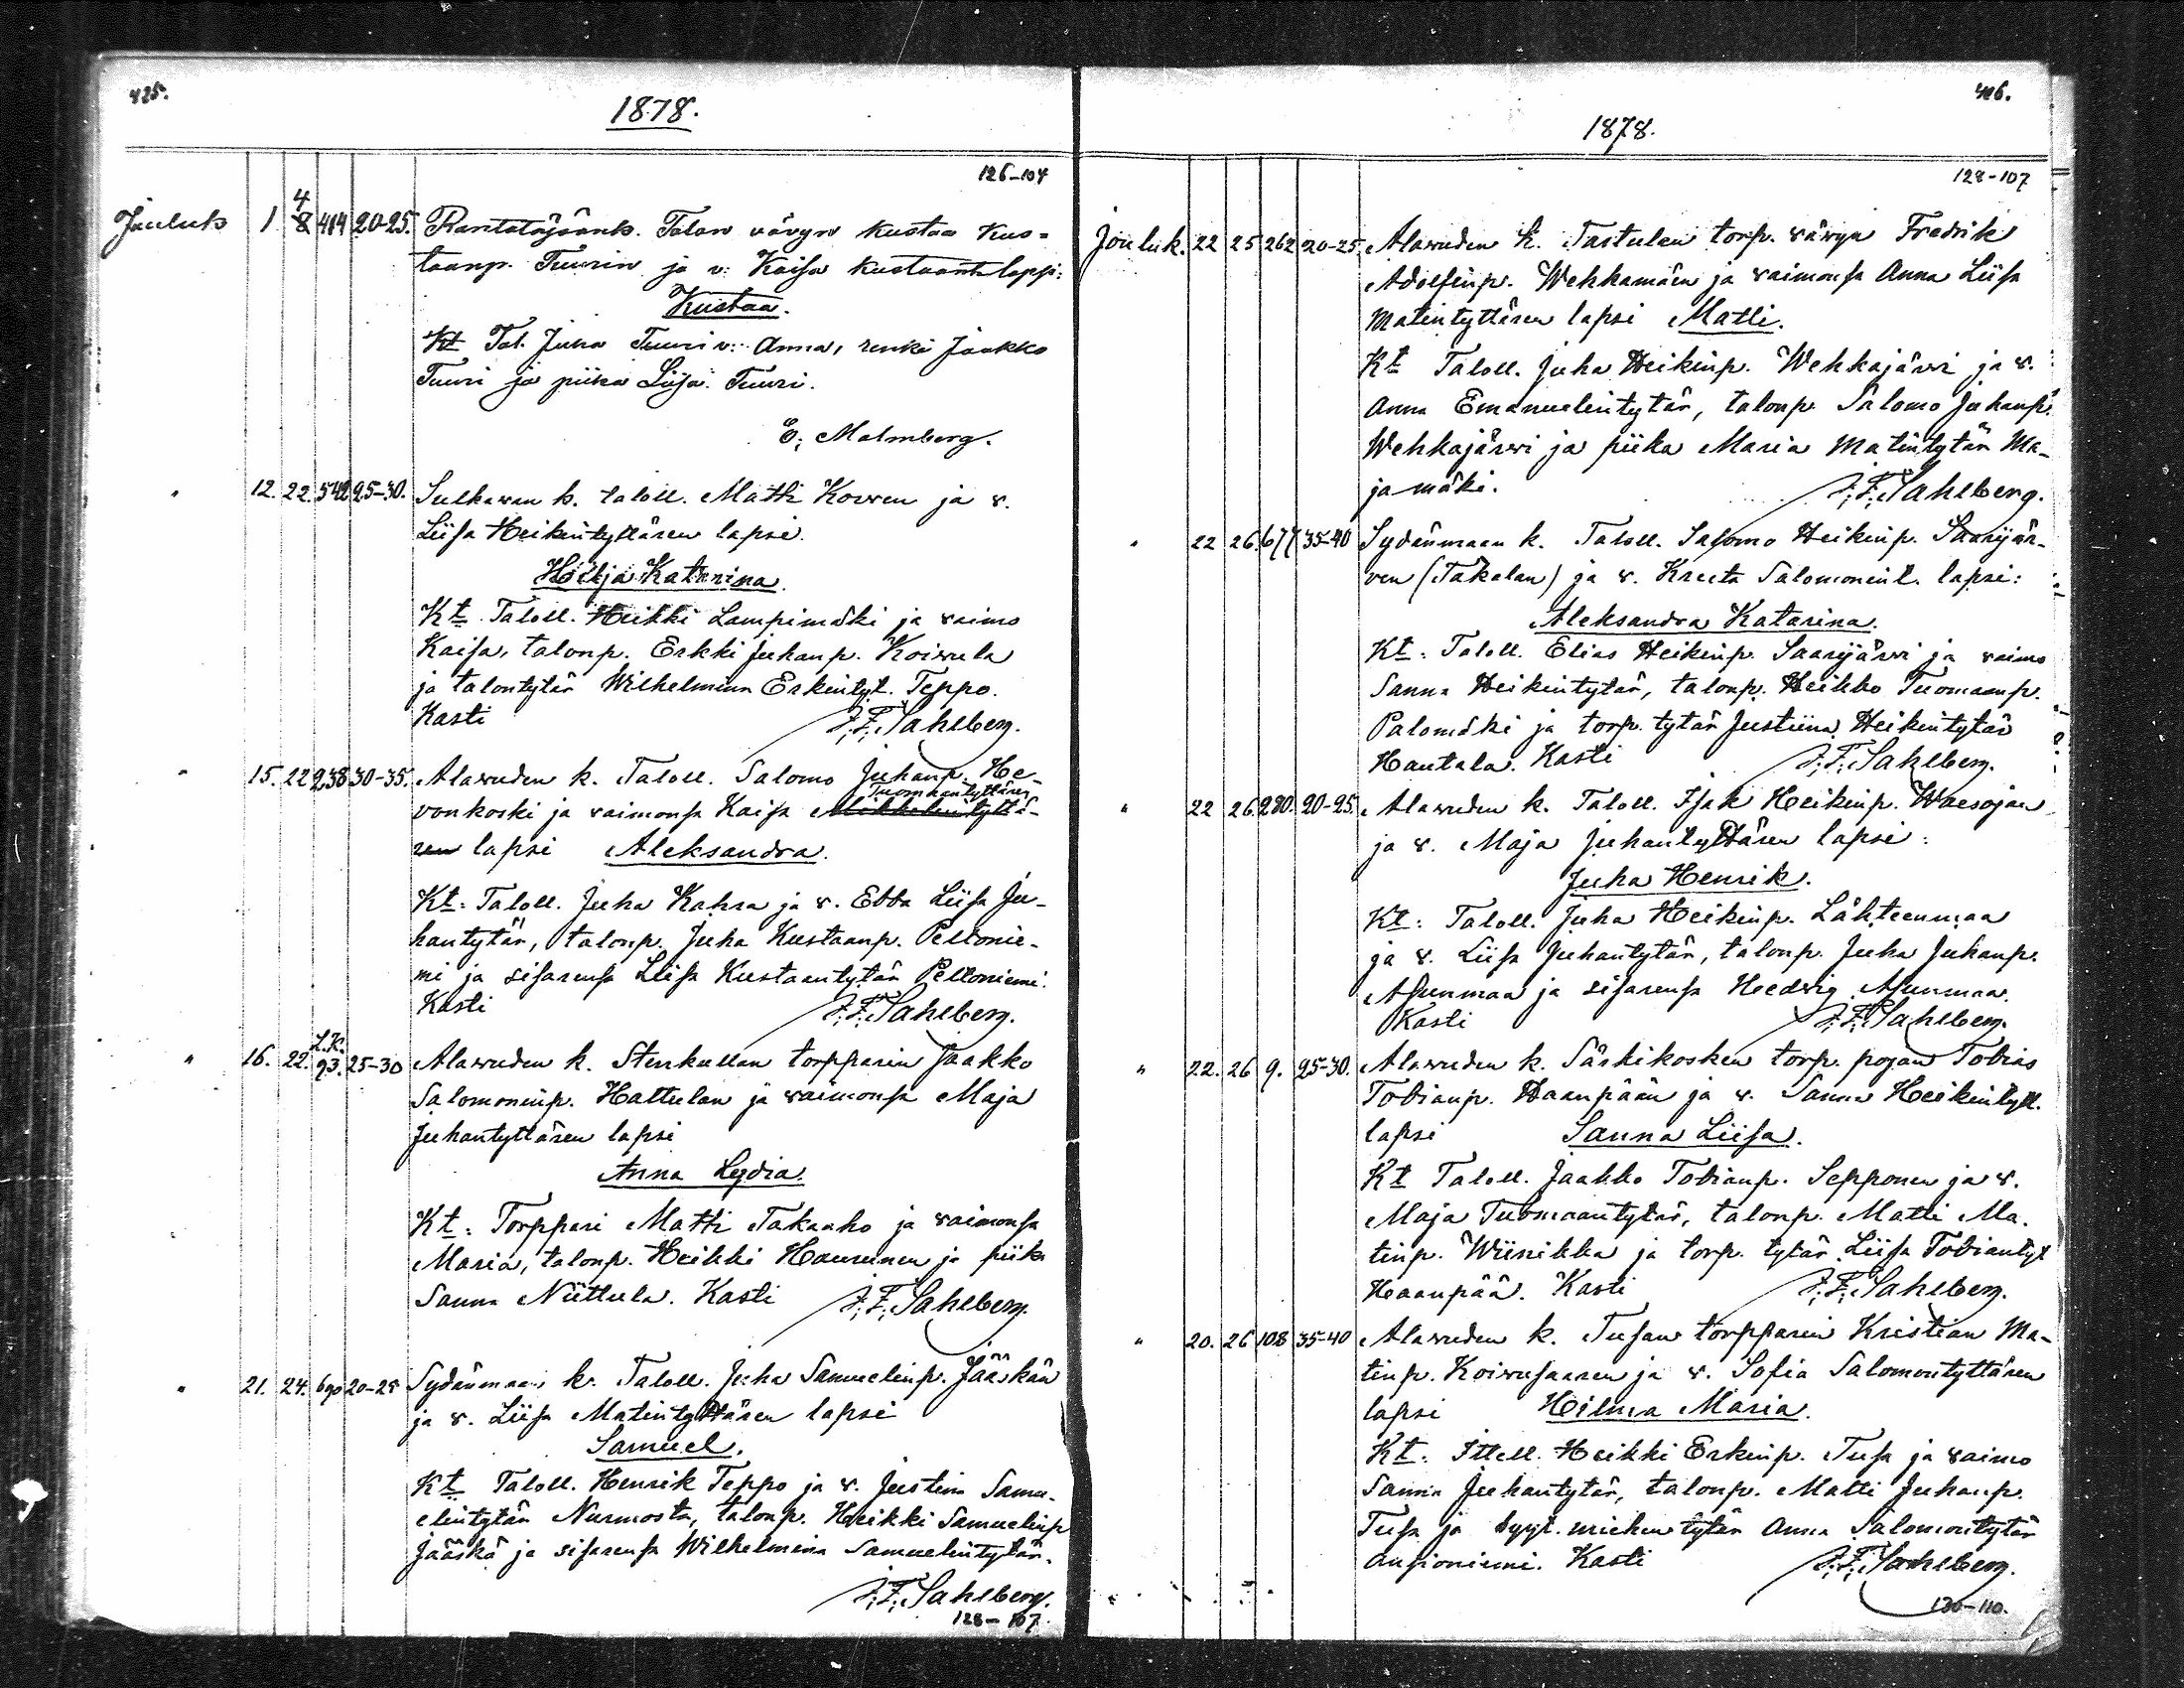 425.
1878.
126-104
Jouluk 1 4 8 414 20-25. Rantatöysänk. Talon vävyn Kustaa Kus-
taanp. Tuurin ja v: Kaisa Kustaant lapsi:
Kustaa.
Kt Tal. Juha Tuuri v: Anna, renki Jaakko
Tuuri ja piika Liisa Tuuri.
E; Malmberg.
" 12. 22. 542 25-30. Sulkavan k. taloll. Matti ja v.
Liisa Heikintyttären lapsi
Hilja Katarina.
Kt Taloll. Heikki Lampimäki ja vaimo
Kaisa, talonp. Erkki Juhanp. Koivula
ja talontytär Wilhelmina Erkintyt. Teppo.
Kasti J. F. Sahlberg.
" 15. 22 238 30-35. Alavuden k. Taloll. Salomo Juhanp. He-
Tuomaantyttären
vonkoski ja vaimonsa Kaisa Mikkelintyttä-
ren lapsi Aleksandra.
Kt: Taloll. Juha Kahra ja v. Ebba Liisa Ju-
hantytär, talonp. Juha Kustaanp. Peltonie-
mi ja sisarensa Liisa Kustaantytär Peltoniemi.
Kasti J. F. Sahlberg.
L.K.
" 16. 22. 93. 25-30 Alavuden k. Stenkullan torpparin Jaakko
Salomoninp. Hattulan ja vaimonsa Maja
Juhantyttären lapsi
Anna Lydia.
Kt: Torppari Matti Takaaho ja vaimonsa
Maria, talonp. Heikki Haurunen ja piika
Sanna Niittula. Kasti J. F. Sahlberg.
" 21. 24. 690 20-25 Sydänmaan k. Taloll. Juha Samuelinp. Jääskän
ja v. Liisa Matintyttären lapsi
Samuel.
Kt Taloll. Henrik Teppo ja v. Justina Samu-
elintytär Nurmosta, talonp. Heikki Samuelinp
Jääskä ja sisarensa Wilhelmina Samuelintytär.
J. F. Sahlberg.
128-107.
406.
1878.
128-107
Jouluk. 22 25 262 20-25 Alavuden k. Tastulan torp. vävyn Fredrik
Adolfinp. Wehkamäen ja vaimonsa Anna Liisa
Matintyttären lapsi Matti.
Kt Taloll. Juha Heikinp. Wehkajärvi ja v.
Anna Emanuelintytär, talonp. Salomo Juhanp.
Wehkajärvi ja piika Maria Matintytär Ma-
jamäki. J. F. Sahlberg.
" 22 26. 677 35-40 Sydänmaan k. Taloll. Salomo Heikinp. Saarijär-
ven (Takalan) ja v. Kreeta Salomonint. lapsi:
Aleksandra Katarina.
Kt: Taloll. Elias Heikinp. Saarijärvi ja vaimo
Sanna Heikintytär, talonp. Heikko Tuomaanp.
Palomäki ja torp. tytär Justiina Heikintytär
Hautala. Kasti J. F. Sahlberg.
" 22 26. 280. 20-25. Alavuden k. Taloll. Isak Heikinp. Waesojan
ja v. Maja Juhantyttären lapsi:
Juha Henrik.
Kt: Taloll. Juha Heikinp. Lähteenmaa
ja v. Liisa Juhantytär, talonp. Juha Juhanp.
Asunmaa ja sisarensa Hedvig Asunmaa.
Kasti J. F. Sahlberg.
" 22. 26 9. 25-30. Alavuden k. Särkikosken torp. pojan Tobias
Tobianp. Haanpään ja v. Sanna Heikintytt.
lapsi Sanna Liisa.
Kt Taloll. Jaakko Tobianp. Sepponen ja v.
Maja Tuomaantytär, talonp. Matti Ma-
tinp. Wiinikka ja torp. tytär Liisa Tobiantyt
Haanpää. Kasti J. F. Sahlberg.
" 20. 26 108 35-40 Alavuden k. Tusan torpparin Kristian Ma-
tinp. Koivusaaren ja v. Sofia Salomontyttären
lapsi Hilma Maria.
Kt: Ittell. Heikki Erkinp. Tusa ja vaimo
Sanna Juhantytär, talonp. Matti Juhanp.
Tusa ja syyt. miehen tytär Anna Salomontytär
Ansioniemi. Kasti J. F. Sahlberg.
130-110.